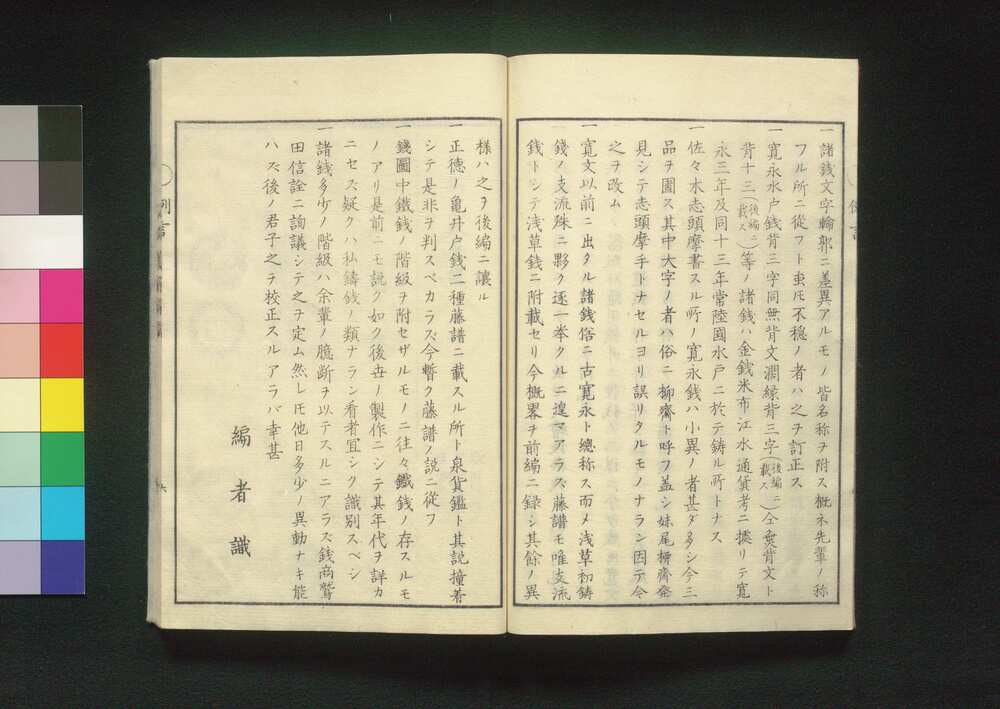 一諸銭文字輪郭ニ差異アルモノ皆名称ヲ附ス概ネ先輩ノ称
フル所ニ從フト虽𪜈不穏ノ者ハ之ヲ訂正ス
一寛永水戸銭背三字同無背文濶縁背三字(後編ニ載ス)仝奠背文ト
背十三(後編ニ載ス)等ノ諸銭ハ金銭米布江水通貨考ニ據リテ寛
永三年及同十三年常陸國水戸ニ於テ鋳ル所トナス
一佐々木志頭摩書スル所ノ寛永銭ハ小異ノ者甚ダ多シ今三
品ヲ圖ス其中大字ノ者ハ俗ニ柳齋ト呼フ盖シ妹尾栁齊発
見シテ志頭摩手トナセルヨリ誤リタルモノナラン因テ今
之ヲ改ム
一寛文以前ニ出タル諸銭俗ニ古寛永ト總称ス而メ浅草初鋳
銭ノ支流殊ニ夥ク逐一挙クルニ遑マアラス藤譜モ唯支流
銭トシテ浅草銭ニ附載セリ今概畧ヲ前編ニ録シ其餘ノ異
様ハ之ヲ後編ニ讓ル
一正徳ノ亀井户銭二種藤譜ニ載スル所ト泉貨鑑ト其説撞着
シテ是非ヲ判スベカラズ今暫ク藤譜ノ説ニ從フ
一錢圖中鐵銭ノ階級ヲ附セザルモノニ往々鐵銭ノ存スルモ
ノアリ是前ニモ説ク如ク後世ノ製作ニシテ其年代ヲ詳カ
ニセズ疑クハ私鋳銭ノ類ナラン看者宜シク識別スベシ
一諸銭多少ノ階級ハ余輩ノ臆断ヲ以テスルニアラズ銭商鷲
田信詮ニ詢議シテ之ヲ定ム然レ𪜈他日多少ノ異動ナキ能
ハズ後ノ君子之ヲ校正スルアラバ幸甚
編者識
例言